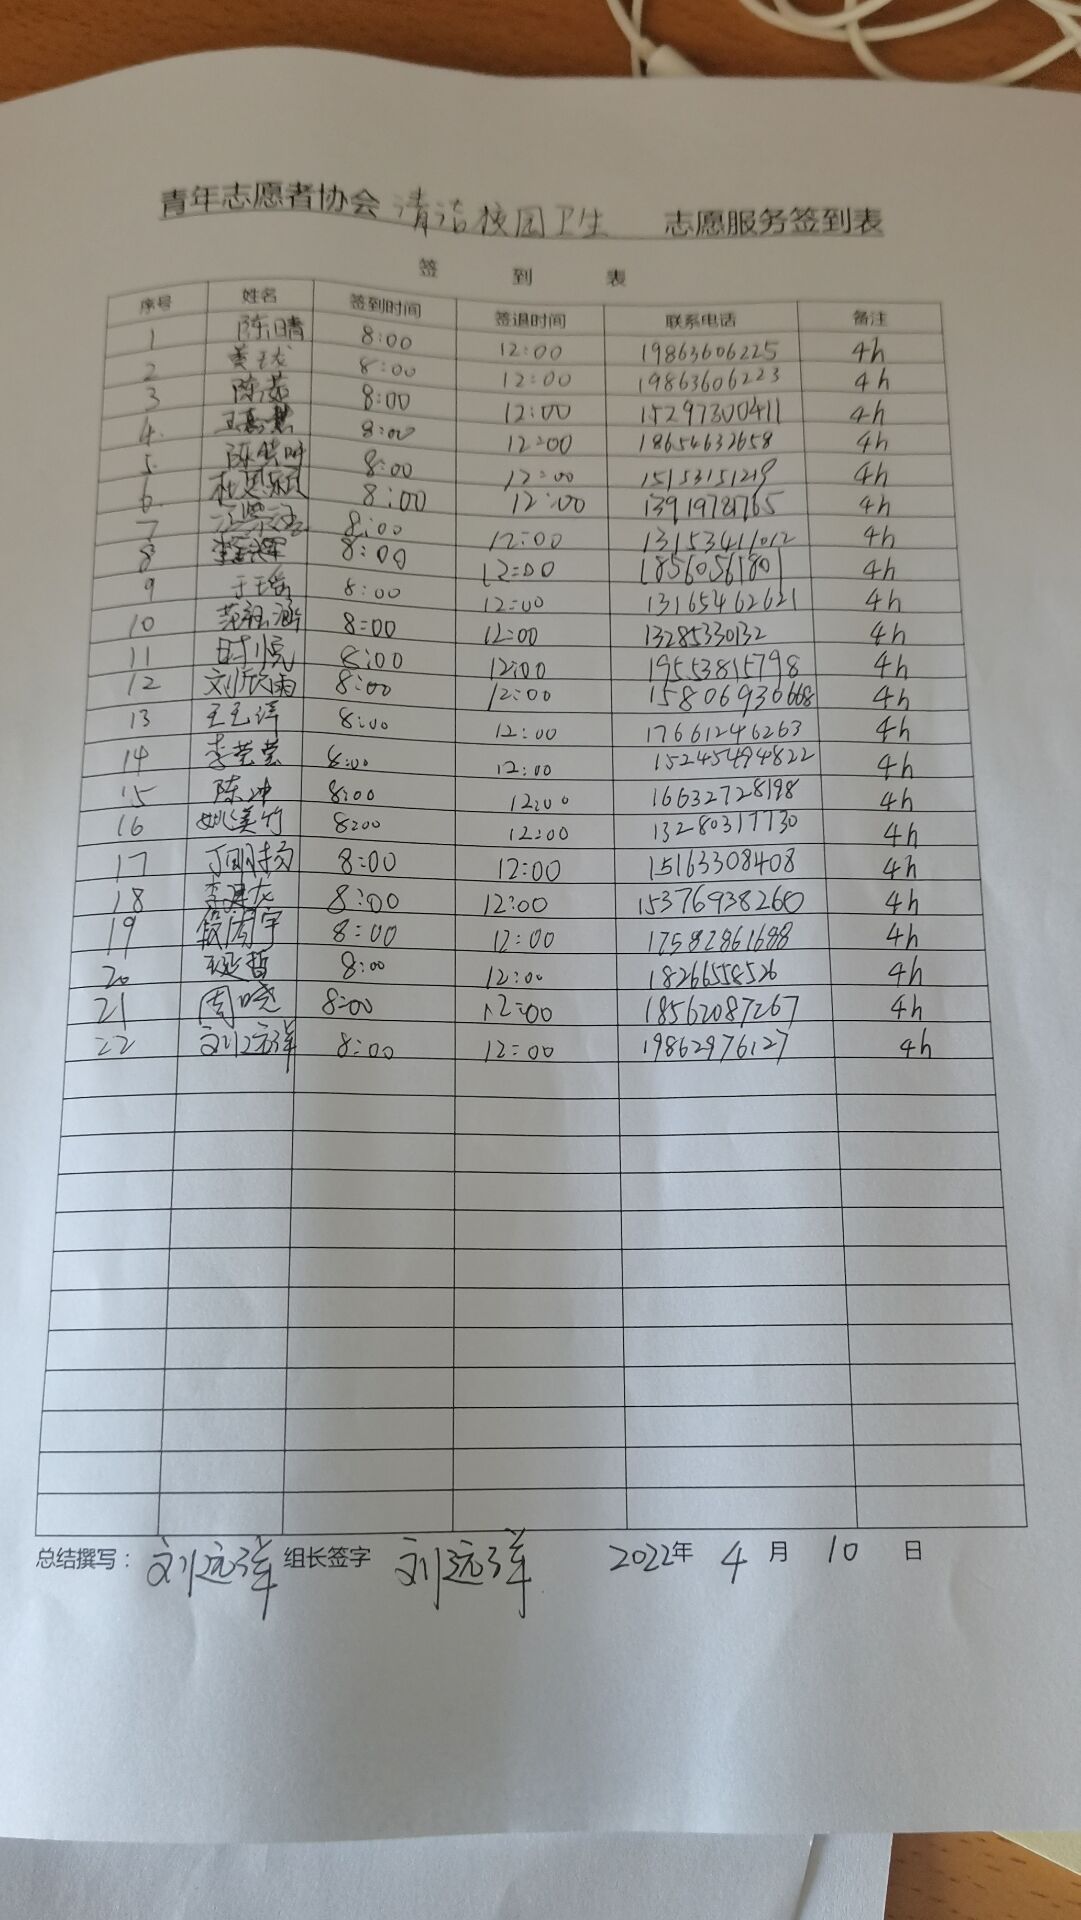 青年志愿者协会 清洁校园卫生 志愿服务签到表
签 到 表
序号 姓名 签到时间 签退时间 联系电话 备注
1 陈晴 8:00 12:00 19863606225 4h
2 8:00 12:00 19863606223 4h
3 陈茹 8:00 12:00 15297300411 4h
4. 王嘉慧 8:00 12:00 18654632658 4h
5. 8:00 12:00 15153151219 4h
6. 8:00 12:00 13919781765 4h
7 8:00 12:00 13153411012 4h
8 8:00 12:00 18560561801 4h
9 于瑶 8:00 12:00 13165462621 4h
10 8:00 12:00 13285330132 4h
11 时悦 8:00 12:00 19553815798 4h
12 刘欣雨 8:00 12:00 158069306668 4h
13 王玉洋 8:00 12:00 17661246263 4h
14 李莹莹 8:00 12:00 15245494822 4h
15 陈冲 8:00 12:00 16632728198 4h
16 姚美竹 8:00 12:00 13280317730 4h
17 丁明扬 8:00 12:00 15163308408 4h
18 李建龙 8:00 12:00 15376938260 4h
19 8:00 12:00 17582861688 4h
20 8:00 12:00 18266558526 4h
21 周晓 8:00 12:00 18562087267 4h
22 刘远洋 8:00 12:00 19862976127 4h
总结撰写： 刘远洋 组长签字 刘远洋 2022年 4 月 10 日